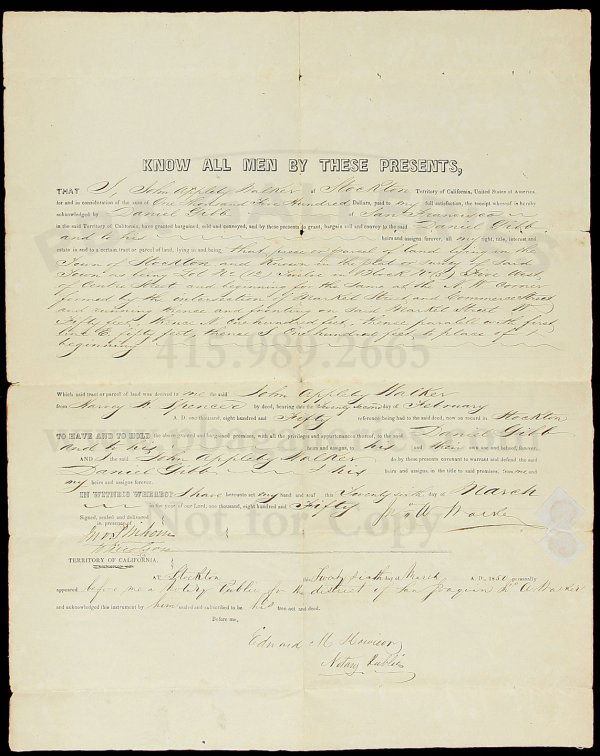 KNOW ALL MEN BY THESE PRESENTS,
THAT I, John Appleby Walker of Stockton Territory of California, United States of America,
for and in consideration of the sum of One thousand Five Hundred Dollars, paid to my full satisfaction, the receipt whereof is hereby
acknowledged by Daniel Gibb of San Francisco
in the said Territory of California, have granted bargained, sold and conveyed, and by these presents do grant, bargain sell and convey to the said Daniel Gibb
and to his heirs and assigns forever, all my right, title, interest and
estate in and to a certain tract or parcel of land, lying in and being, that piece or parcel of land lying in the
Town of Stockton and Known on the plat or survey of said
Town as being Lot No (12) Twelve in Block No (5) Five West
of Centre Street and beginning for the same at the N.W. corner
formed by the intersection of Market Street and Commerce Street
and running thence and fronting on said Market Street W
Fifty feet, thence N One hundred feet, thence parallel with the first
line E fifty feet, thence S One hundred feet to place of
beginning
415.989.2665
Which said tract or parcel of land was devised to me the said John Appleby Walker
from Harvey H. Spencer by deed, bearing date the twenty second day of February
A. D. one thousand, eight hundred and Fifty reference being had to the said deed, now on record in Stockton
TO HAVE AND TO HOLD the above granted and bargained premises, with all the privileges and appurtenances thereof, to the said Daniel Gibb
and to his heirs and assigns, to his and their own use and behoof, forever.
AND the said John Appleby Walker do by these presents covenant to warrant and defend the said
Daniel Gibb his heirs and assigns, in the title to said premises, from me and
my heirs and assigns forever.
IN WITNESS WHEREOF I have hereunto set my hand and seal this Twenty sixth day of March
in the year of our Lord, one thousand, eight hundred and Fifty
Not for Copy
Signed, sealed and delivered
in presence of
TERRITORY OF CALIFORNIA.
At Stockton this Twenty sixth day of March A. D. 1850 personally
appeared before me a Notary Public for the district of San Joaquin Jno A Walker
and acknowledged this instrument by him sealed and subscribed to be his free act and deed.
Before me,
Edward M. Howison
Notary Public